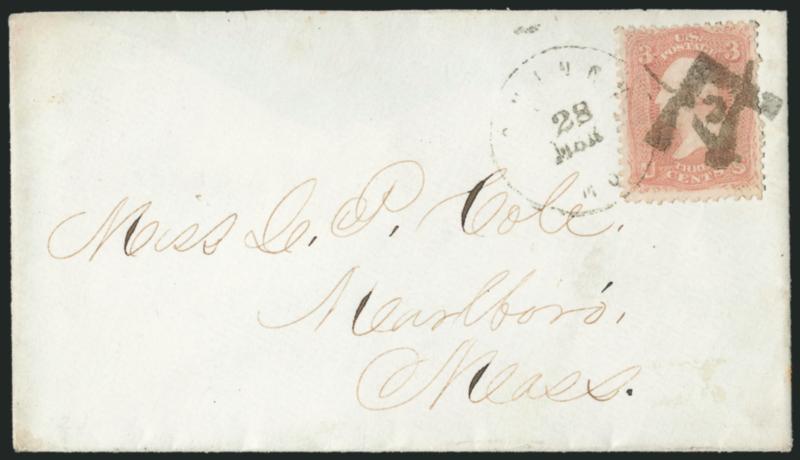 U.S.
POSTAGE
3 3
28
MAR
3
THREE
CENTS
Miss L. P. Cole.
Marlboro,
Mass.